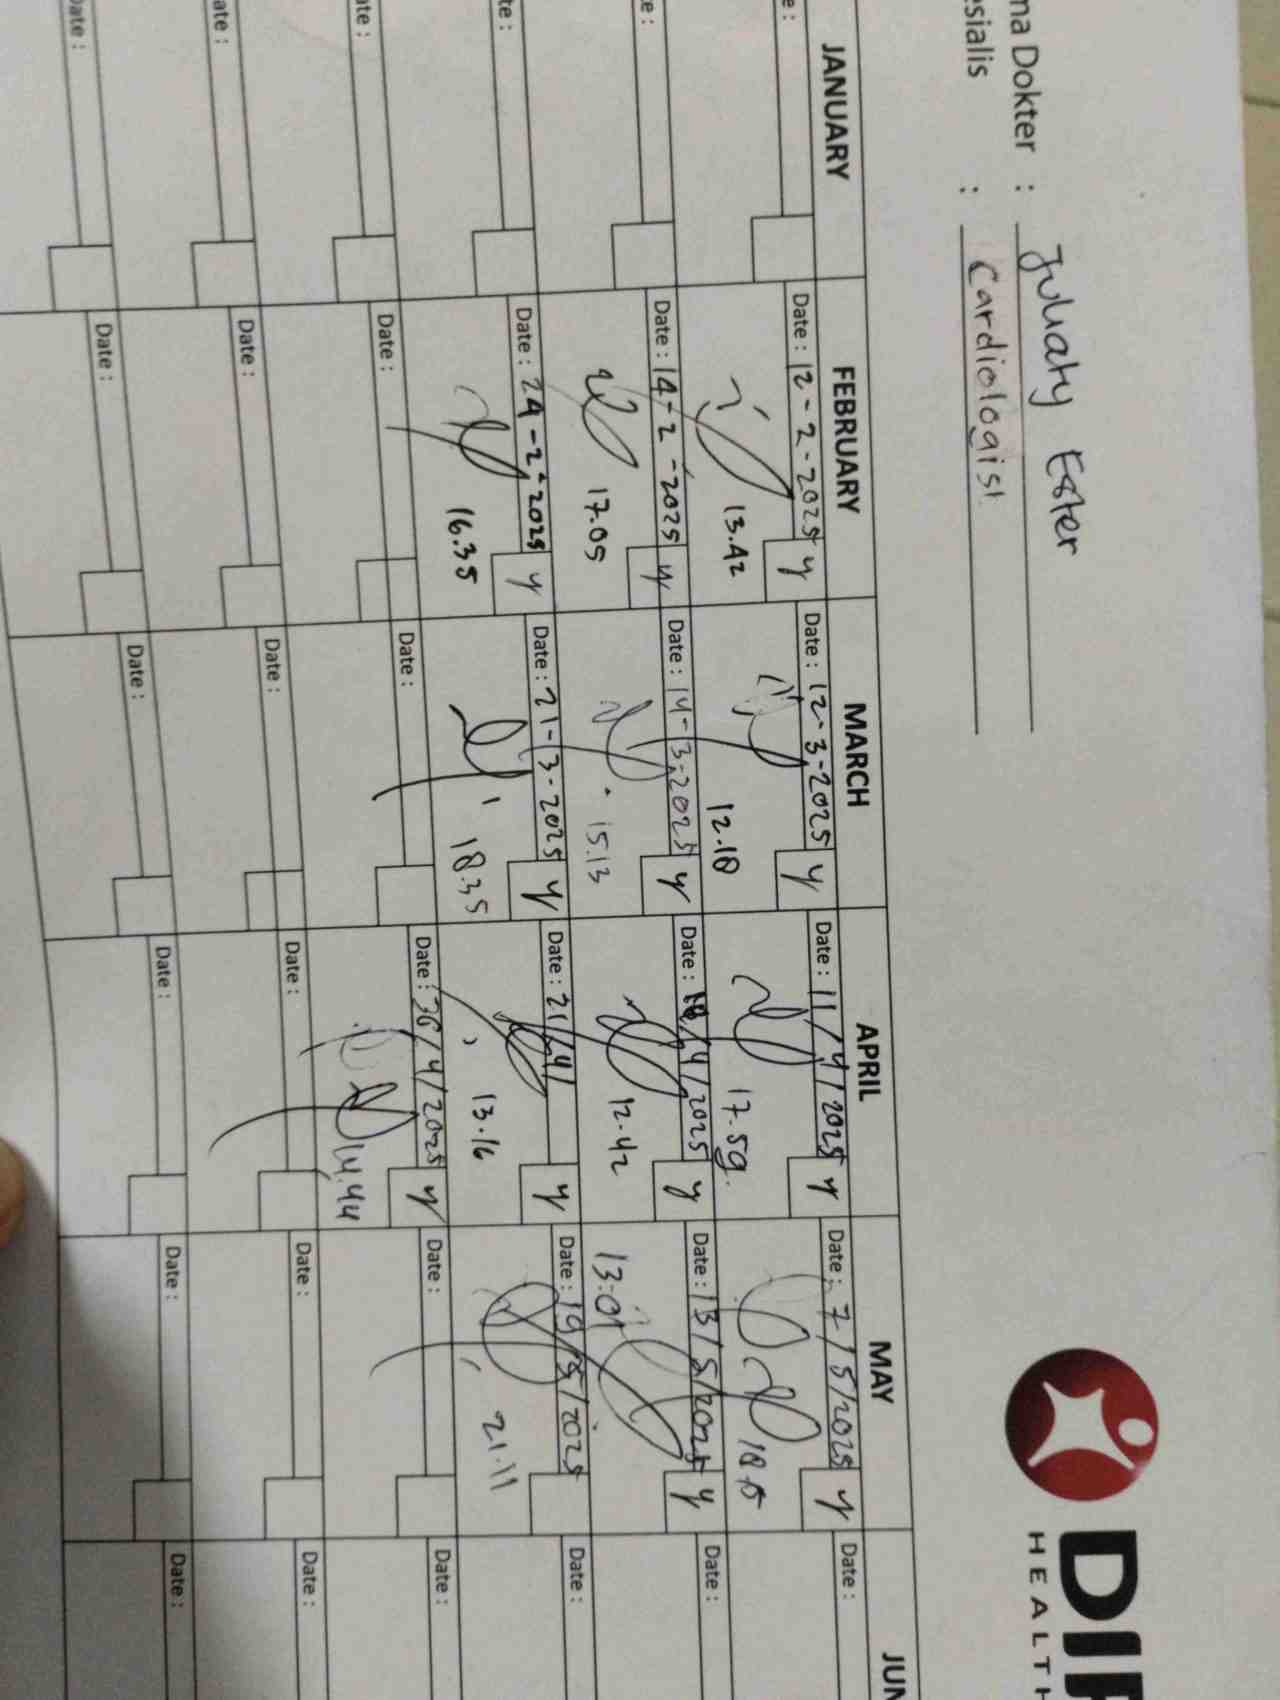 ma Dokter : Juliaty Ester
esialis : Cardiologist
DI
HEALTH
JANUARY FEBRUARY MARCH APRIL MAY JUN
e : Date : 12-2-2025 y Date : 12-3-2025 y Date : 11/4/2025 y Date : 7/5/2025 y Date :
13.42 12.18 17.59.
e : Date : 14-2-2025 y Date : 14-3-2025 y Date : 18/4/2025 y Date : 13/5/2025 y Date :
17.05 15.13 12.42 13:01
te : Date : 24-2-2025 y Date : 21-3-2025 y Date : 21/4/ y Date : 19/5/2025 Date :
16.35 18.35 13.16 21.11
ate : Date : Date : Date : 26/4/2025 y Date : Date :
14.44
ate : Date : Date : Date : Date : Date :
Date : Date : Date : Date : Date : Date :